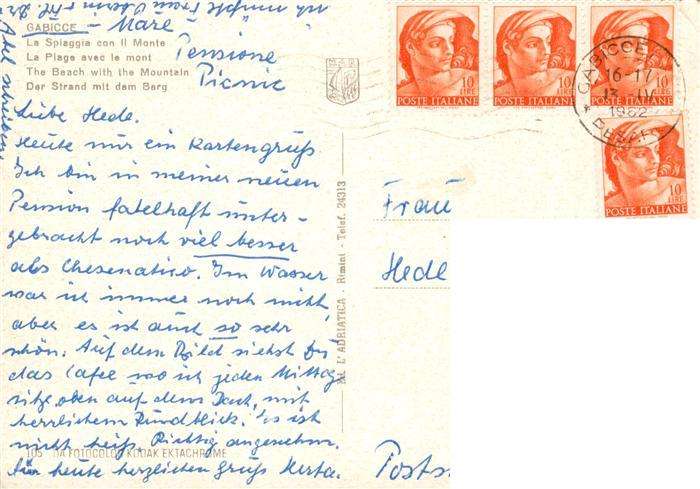 GABICCE - Mare -
La Spiaggia con il Monte
La Plage avec le mont
The Beach with the Mountain
Der Strand mit dem Berg
Pensione
Picnic
Liebe Hede.
Heute nur ein Kartengruß
Ich bin in meiner neuen
Pension fabelhaft unter-
gebracht noch viel besser
als Chesenatico. Im Wasser
war ich immer noch nicht,
aber es ist auch so sehr
schön. Auf dem Bild siehst Du
das Cafe wo ich jeden Mittag
sitze oben auf dem Dach, mit
herrlichem Rundblick. Es ist
nicht heiß. Richtig angenehm.
Für heute herzlichen Gruß Herta.
105 - DA FOTOCOLOR KODAK EKTACHROME
L'ADRIATICA - Rimini - Telef. 24313
10 LIRE
POSTE ITALIANE
10 LIRE
POSTE ITALIANE
10 LIRE
POSTE ITALIANE
GABICCE
16-17
13 IV
1962
10 LIRE
POSTE ITALIANE
Frau
Hede